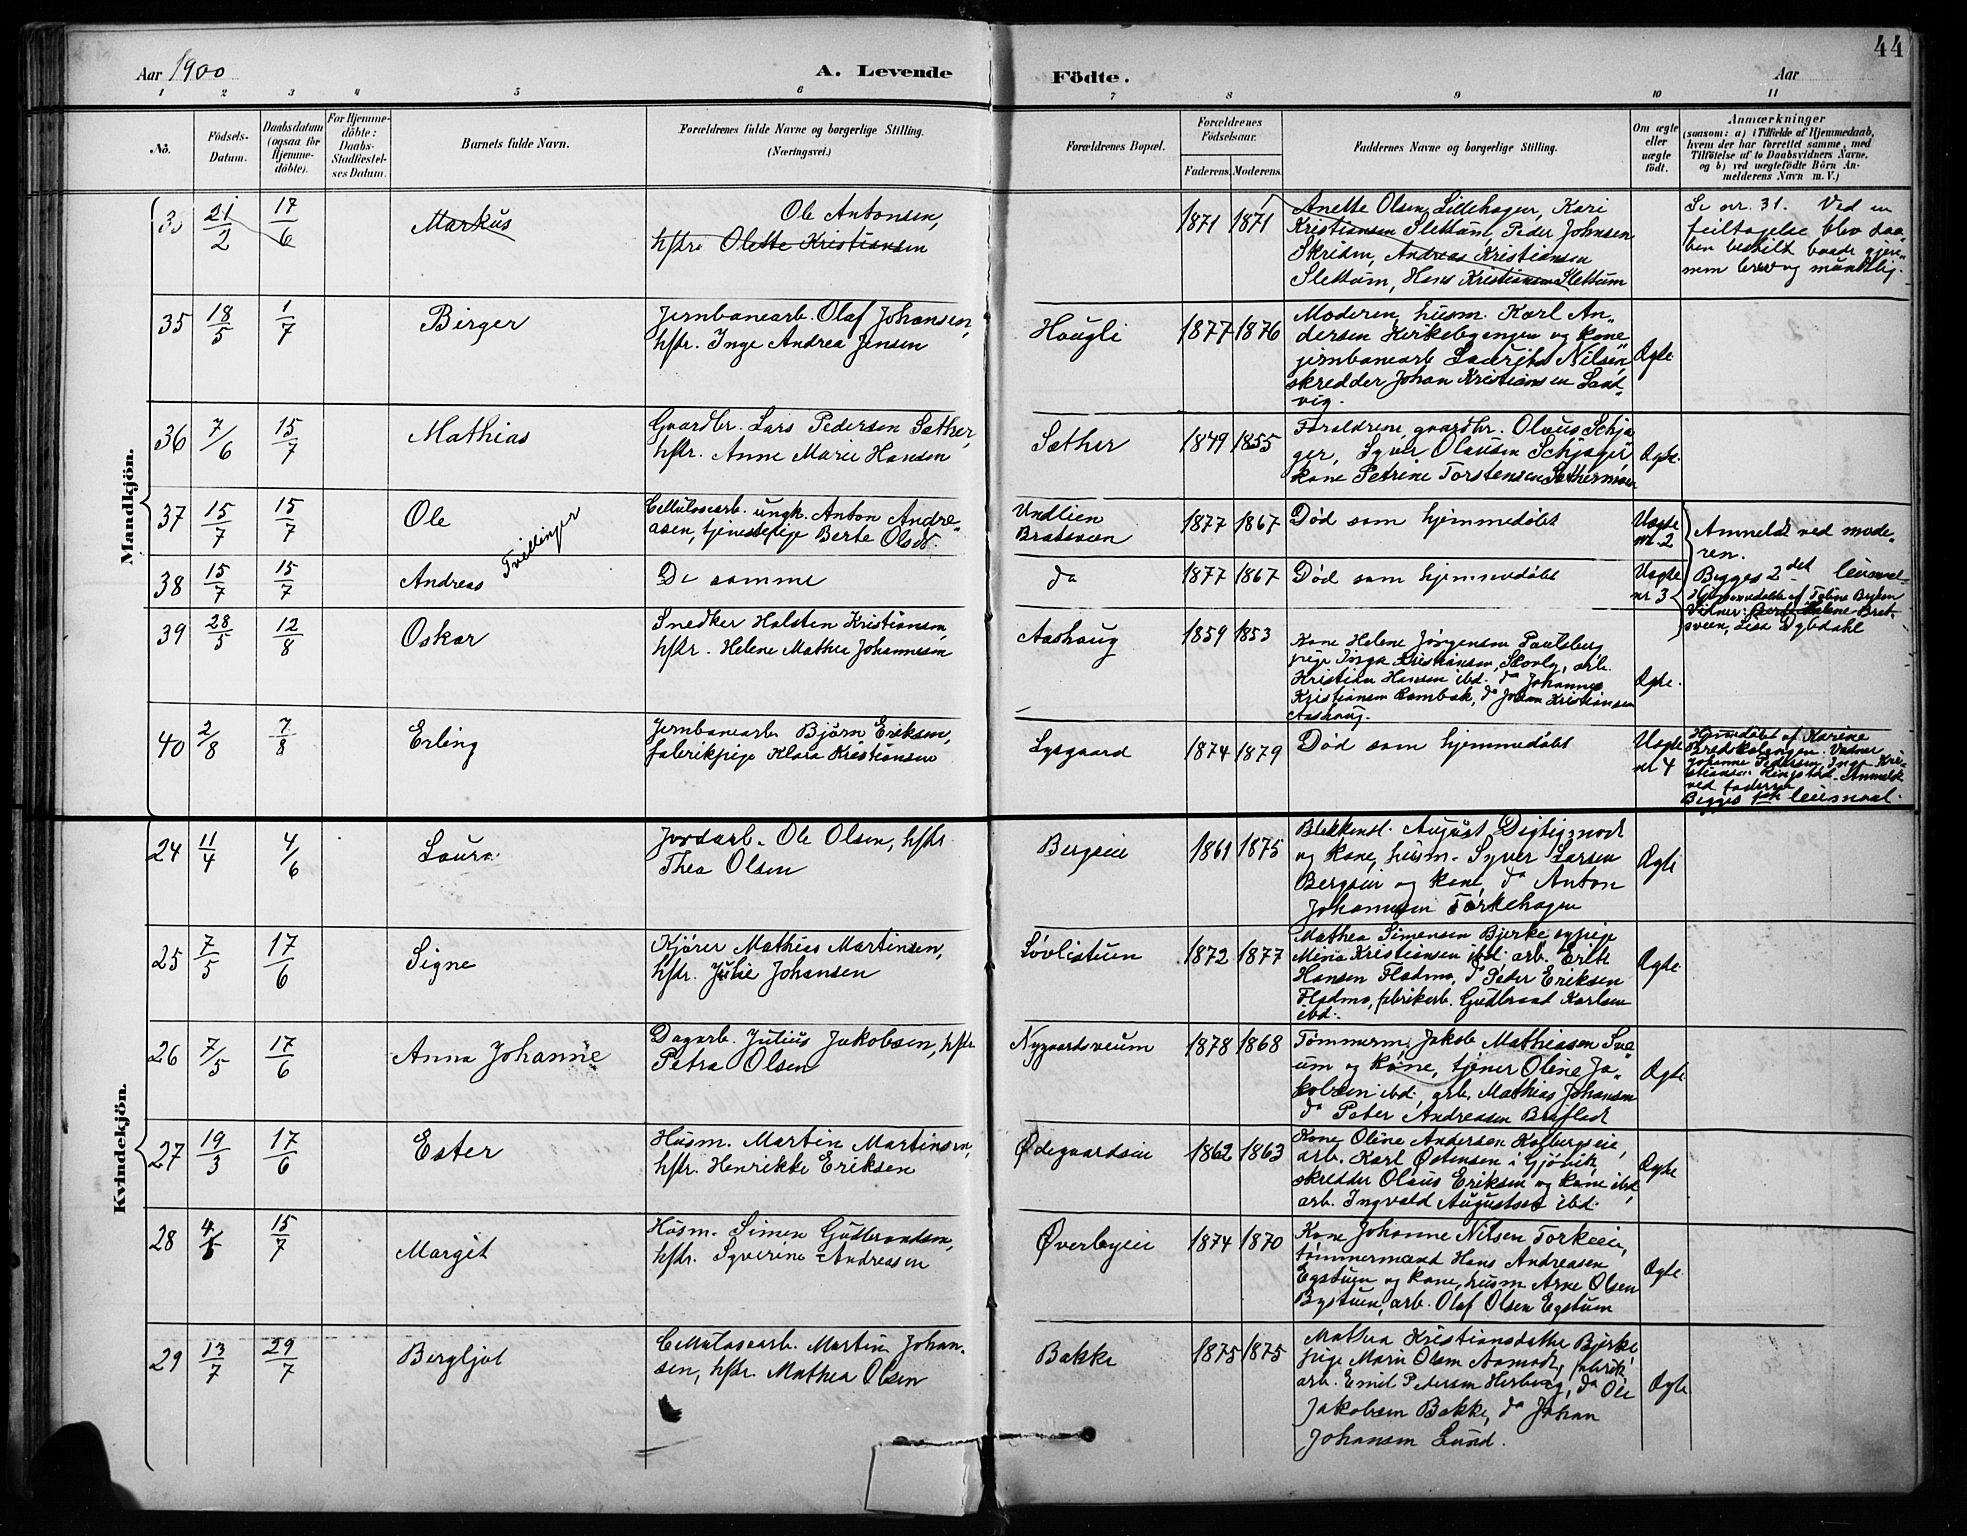 44
Aar 1900
A. Levende Födte.
Aar
1 2 3 4 5 6 7 8 9 10 11
No. Födsels-Datum. Daabsdatum (ogsaa for Hjemme-döbte). For Hjemme-döbte: Daabs-Stadfæstel-ses Datum. Barnets fulde Navn. Forældrenes fulde Navne og borgerlige Stilling. (Næringsvei.) Forældrenes Bopæl. Forældrenes Födselsaar. Faderens. Moderens. Faddernes Navne og borgerlige Stilling. Om ægte eller uægte födt. Anmærkninger (saasom: a) i Tilfælde af Hjemmedaab, hvem der har forrettet samme, med Tilföielse af to Daabsvidners Navne, og b) ved uægtefödte Börn An-melderens Navn m. V.)
Mandkjön.
21/2 17/6 Markus
Ole Antonsen,
hstr. Olette Kristiansen
1871 1871
Anette Olsen Lillehagen, Kari
Kristiansen Slettum, Peder Johnsen
Skriden, Andreas Kristiansen
Slettum, Hans Kristiansen Slettum
Se nr. 31. Ved en
feiltagelse blev daa-
ben bestilt baade gjen-
nem brev og mundtlig.
35 18/5 1/7 Birger
Jernbanearb. Olaf Johansen,
hstr. Inga Andrea Jensen
Haugli 1877 1876
Moderen, husm. Karl An-
dersen Kirkebyengen og kone
jernbanearb Lauritz Nilsen,
skredder Johan Kristiansen Sand-
vig.
Ægte
36 7/6 15/7 Mathias
Gaardbr. Lars Pedersen Sæther,
hstr. Anne Marie Hansen
Sæther 1849 1855
Forældrene gaardbr. Olaus Schjø-
ger, Syver Olausen Schjøger
kone Petrine Torstensen Sæthermoen
Ægte.
37 15/7 15/7 Ole
Tvillinger
Cellulosearb. ungk. Anton Andre-
asen, tjenestepige Berte Olsdr.
Undlien
Bratsveen
1877 1867 Død som hjemmedøbt
Uægte
nr. 2
Anmeldt ved mode-
ren.
Begges 2det leiermaal-
Hjemmedøbt af Toline Byhm
Vidner: Berte Helene Brat-
sveen, Lisa Dybdahl
38 15/7 15/7 Andreas
De samme
do 1877 1867 Død som hjemmedøbt
Uægte
nr 3
39 28/5 12/8 Oskar
Snedker Halsten Kristiansen,
hstr. Helene Mathea Johannesen
Aashaug 1859 1853
Kone Helene Jørgensen Paulsberg
pige Inga Kristiansen, Skovly, arb.
Kristian Hansen ibd. do Johannes
Kristiansen Rambæk, do Johan Kristiansen
Aashaug.
Ægte.
40 2/8 7/8 Erling
Jernbanearb. Bjørn Eriksen,
fabrikpige Klara Kristiansen
Lysgaard 1874 1879 Død som hjemmedøbt
Uægte
nr 4
Hjemdøbt af Karine
Bredskalengen. Vidner
Johanne Pedersen, Inga Kri-
stiansen Ringstad. Anmeldt
ved faderen
Begges leiermaal.
Kvindekjön.
24 11/4 4/6 Laura
Jordarb. Ole Olsen, hstr.
Thea Olsen
Bergseie 1861 1875
Blikkensl. August Digtignach
og kone, husm. Syver Larsen
Bergseie og kone, do Anton
Johannesen Torkehagen
Ægte
25 7/5 17/6 Signe
Kjører Mathias Martinsen,
hstr. Julie Johansen
Løvlistuen 1872 1877
Mathea Simensen Bjerke sypige
Mina Kristiansen ibd. arb. Erik
Hansen Fladmo, do Peder Eriksen
Fladmo, fabrikarb. Gudbrand Karlsen
ibd.
Ægte.
26 7/5 17/6 Anna Johanne
Dagarb. Julius Jakobsen, hstr.
Petra Olsen
Nygaardsveum 1878 1868
Tømmerm. Jakob Mathiasen Sve-
um og kone, tjener Oline Ja-
kobsen ibd, arb. Mathias Johansen
do Peter Andreasen Braflad
Ægte
27 19/3 17/6 Ester
Husm. Martin Martinsen,
hstr. Henrikke Eriksen
Ødegaardseie 1862 1863
Kone Oline Andersen Kolbergseie,
arb. Karl Østensen i Gjøvik,
skredder Olaus Eriksen og kone ibd,
arb. Ingvald Augustsen ibd.
Ægte
28 15/7 Margit
Husm. Simen Gudbrandsen,
hstr. Syverine Andreasen
Øverbyeie 1874 1870
Kone Johanne Nilsen Torkeeie,
tømmermand Hans Andreasen
Egstuen og kone, husm Arne Olsen
Bystuen, arb. Olaf Olsen Egstuen
Ægte.
29 13/7 29/7 Bergljot
Cellulosearb. Martin Johan-
sen, hstr. Mathea Olsen
Bakke 1875 1875
Mathea Kristiansdatter Bjerke
pige Marie Olsen Aamodt, fabrik-
arb. Emil Pedersen Herberg, do Ole
Jakobsen Bakke, do Johan
Johansen Lund.
Ægte